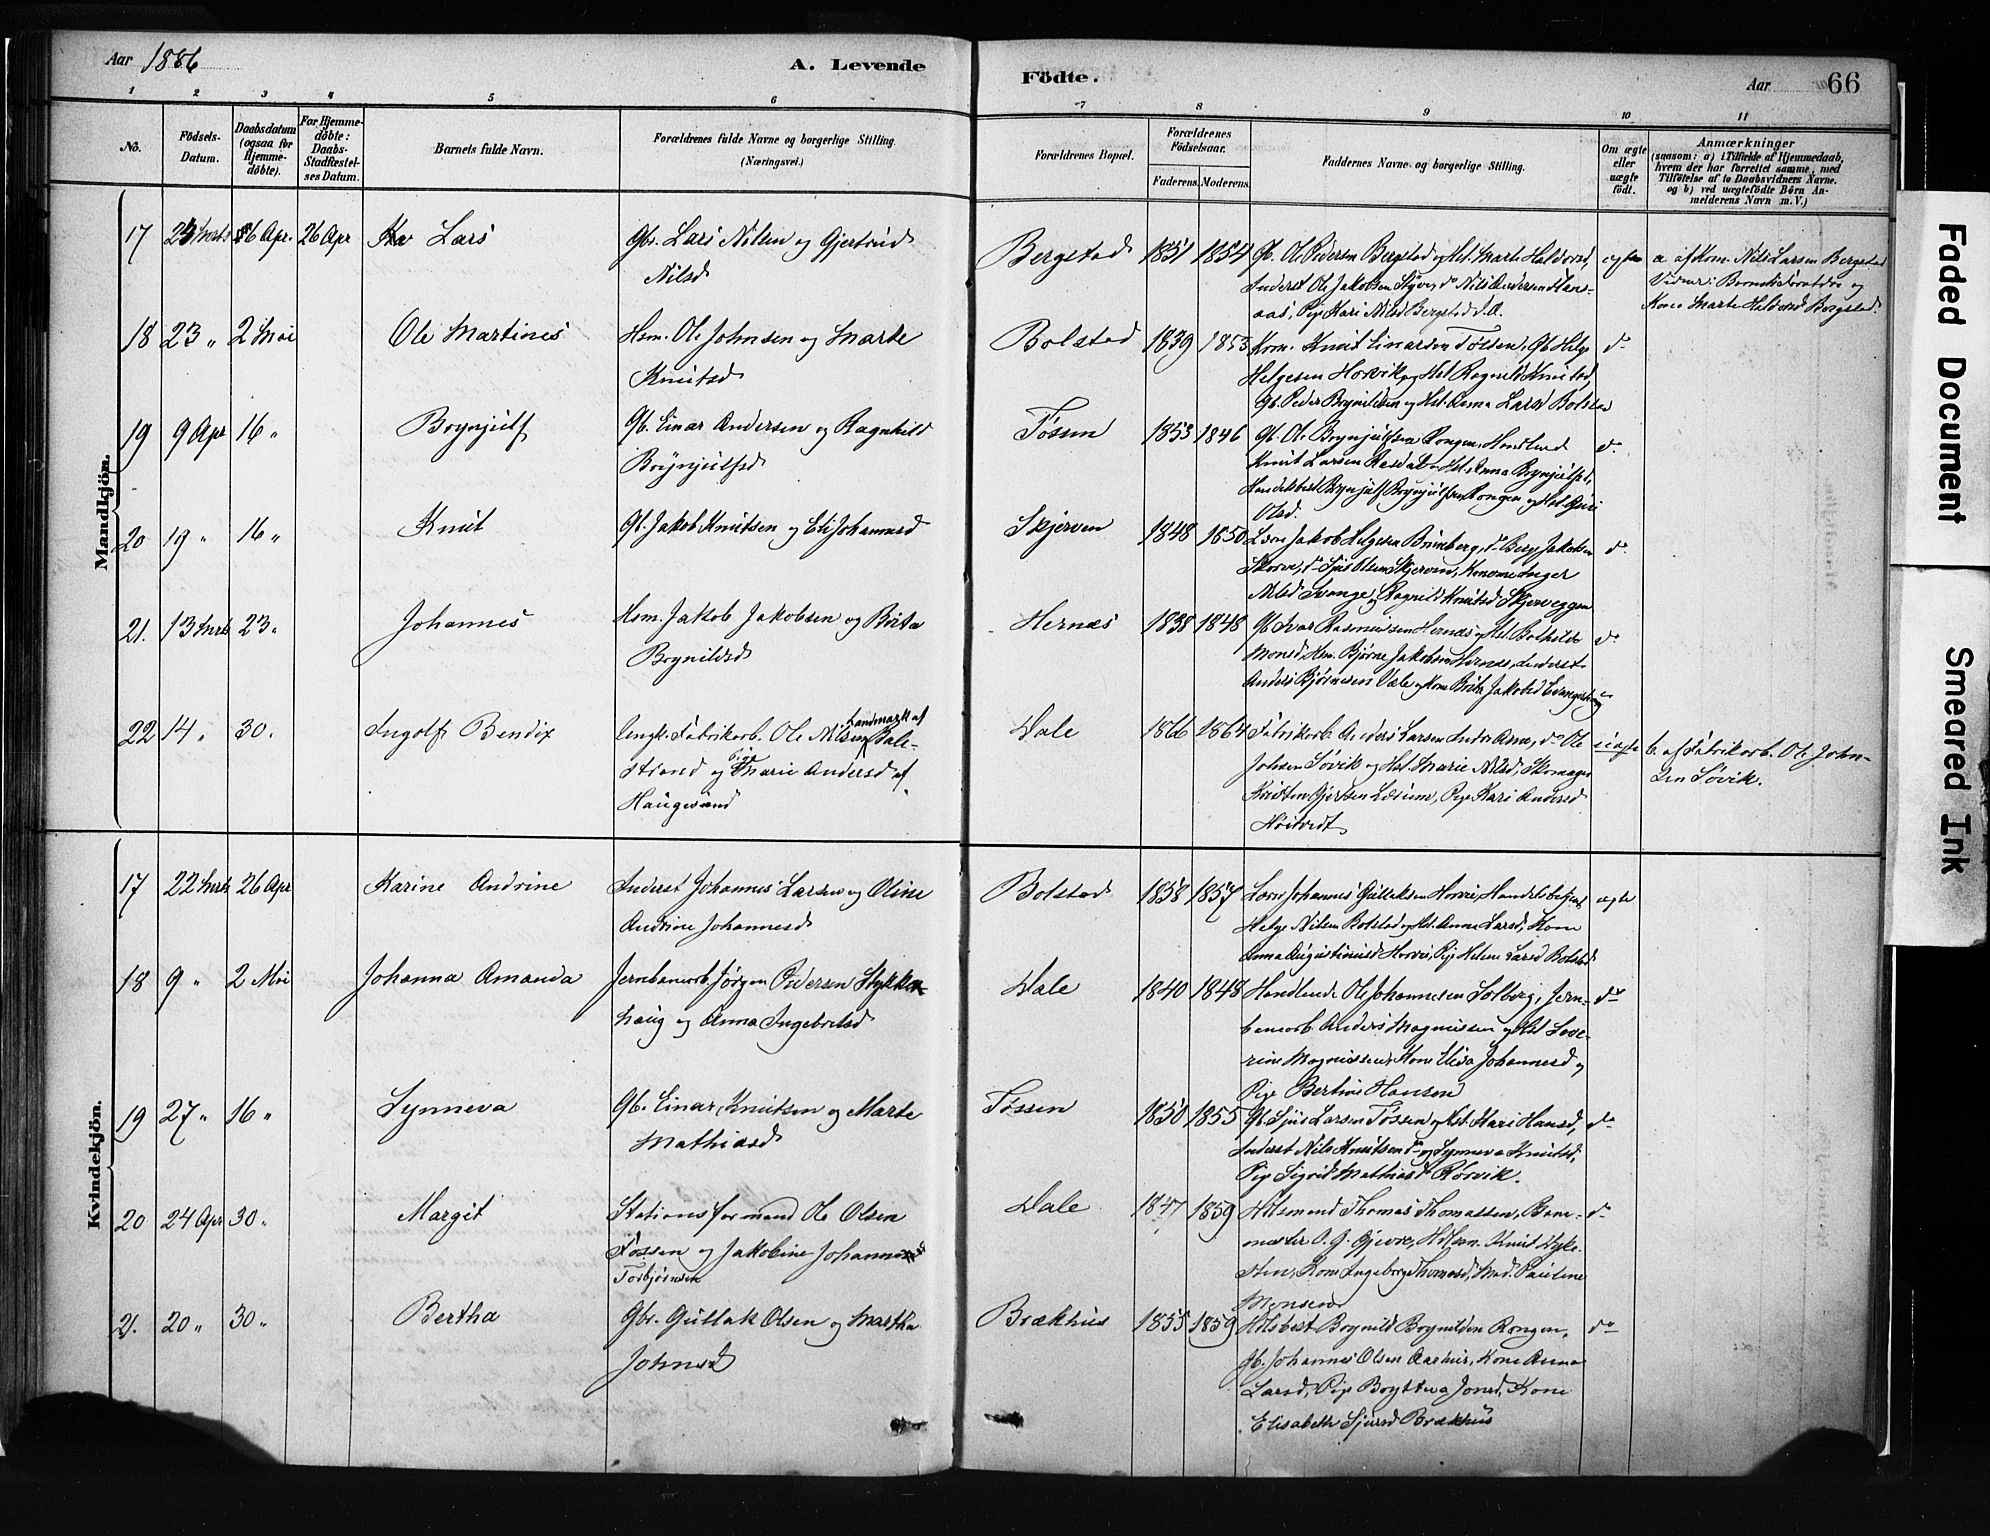 Aar 1886
A. Levende
Födte.
Aar
66
1 2 3 4 5 6 7 8 9 10 11
No.
Födsels-Datum.
Daabsdatum (ogsaa for Hjemme-døbte).
For Hjemme-døbte: Daabs-Stadfæstel-ses Datum.
Barnets fulde Navn.
Forældrenes fulde Navne og borgerlige Stilling.
(Næringsvei.)
Forældrenes Bopæl.
Forældrenes Fødselsaar.
Faderens. Moderens.
Faddernes Navne og borgerlige Stilling.
Om ægte eller uægte født.
Anmærkninger
(saasom: a) i Tilfælde af Hjemmedaab,
hvem der har forrettet samme, med
Tilføielse af to Daabsvidners Navne.
og b) ved uægtefødte Børn An-
melderens Navn m. V.)
Mandkjön.
17 Marts 26 Apr. 26 Apr Lars Gbr. Lars Nilsen og Gjertrud
Nilsd
Bergstad 1851 1854 Gb. Ole Pedersen Bergstad og Hst. Marte Haldorsd,
Inderst Ole Jakobsen Nils Andersen
Pige Kari Nilsd Bergstad
ægte a. af Kom. Nils Larsen Bergstad
Kone Marte Haldorsd Bergstad.
18 23 " 2 Mai Ole Martines Hsm. Ole Johnsen og Marte
Knutsd
Bolstad 1839 1853 Kom. Knut Einarsen Tøssen, Gb. Helge
Helgesen Horvik og Hst. Ragnild Knutsd,
Gb. Peder Brynildsen og Hst. Anna Larsd Bolstad
do
19 9 Apr 16 " Brynjulf Gb. Einar Andersen og Ragnhild
Brynjulfsd
Tøssen 1853 1846 Gb. Ole Brynjulfsen Rongen, Handlend
Knut Larsen Rasdal og Hst. Anna Brynjulfsd,
Handelsbest Brynjulf Brynjulfsen Rongen og Hst. Guri
Olsd.
do
20 19 " 16 " Knut Gb. Jakob Knutsen og Eli Johannesd
Skjerven 1848 1850 Jakob Helgesen Brunborg, Jakobsen
Olsen Skjerven, Kone Inger
Nilsd og Ragnild Knutsd Skjerveggen
do
21. 13 Marts 23 " Johannes Hsm. Jakob Jakobsen og Brita
Brynildsd
Hernæs 1838 1848 Gb. Ivar Rasmussen Hernæs og Hst. Bothilda
Monsd, Hsm. Bjørne Jakobsen Hernæs, Inderst
Anders Bjørnesen Væle og Kone Brita Jakobsd
do
22 14 " 30. Ingolf Bendix Ungk. Fabrikarb. Ole Nilsen Landmark af Bale-
strand og Pige Marie Andersd af
Haugesund
Dale 1866 1864 Fabrikarb Anders Larsen do Ole
Johnsen Søvik og Hst. Marie Nilsd, Skomager
Kristen Gjertsen Lærum, Pige Kari Andersd
Høitvedt
uægte b. af Fabrikarb. Ole John-
sen Søvik.
Kvindekjön.
17 22 Marts 26 Apr Karine Andrine Inderst Johannes Larsen og Oline
Andrine Johannesd
Bolstad 1858 1857 Johannes Gullaksen Horvei, Handelsbetjent
Helge Nilsen Bolstad og Hst. Anna Larsd, Kone
Anna Augustinusd Horvei, Pige Helene Larsd Bolstad
ægte
18 9 " 2 Mai Johanna Amanda Jernbanearb. Jørgen Pedersen Stykka-
haug og Anna Ingebretsd
Dale 1840 1848 Handlende Ole Johannesen Solberg, Jern-
banearb. Anders Magnussen og Hst Seve-
rine Magnussen, Kone Elisa Johannesd og
Pige Bertine Hansen
do
19 27 " 16 " Synneva Gb. Einar Knutsen og Marte
Mathiasd
Tøssen 1850 1855 Gb. Sjur Larsen Tøssen og Hst. Kari Hansd,
Inderst Nils Knutsen do og Synneva Knutsd,
Pige Sigrid Mathiasd Rørvik.
do
20 24 Apr 30 " Margit Stationsformand Ole Olsen
Fossen og Jakobine Johanne
Torbjørnsen
Dale 1847 1859 Thomas Thomassen, Bane-
mester O. G. Gjevre, Knut Dyke-
sten, Kone Ingeborg Thomasd, Mad. Pauline
Monsen
do
21. 20 " 30 " Bertha Gbr. Gullak Olsen og Martha
Johnsd
Brækhus 1855 1859 Hdlsbest Brynild Brynildsen Rongen,
Gb. Johannes Olsen Aarhus, Kone Anna
Larsd, Pige Bryteva Jonsd, Kone
Elisabeth Sjursd Brækhus
do
Faded Document
Smeared Ink